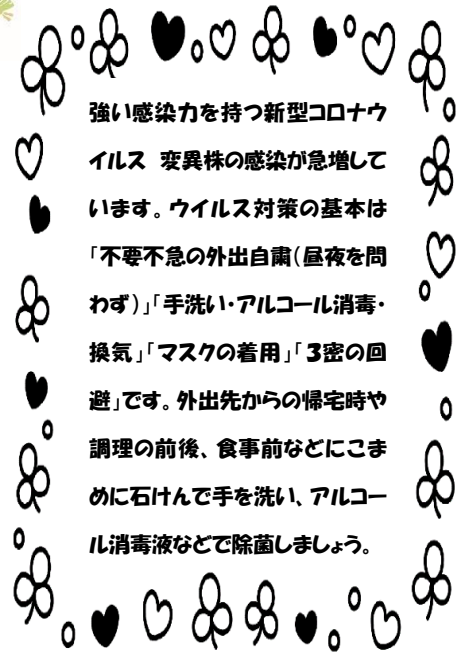 強い感染力を持つ新型コロナウ
イルス　変異株の感染が急増して
います。ウイルス対策の基本は
「不要不急の外出自粛（昼夜を問
わず）」「手洗い・アルコール消毒・
換気」「マスクの着用」「３密の回
避」です。外出先からの帰宅時や
調理の前後、食事前などにこま
めに石けんで手を洗い、アルコー
ル消毒液などで除菌しましょう。